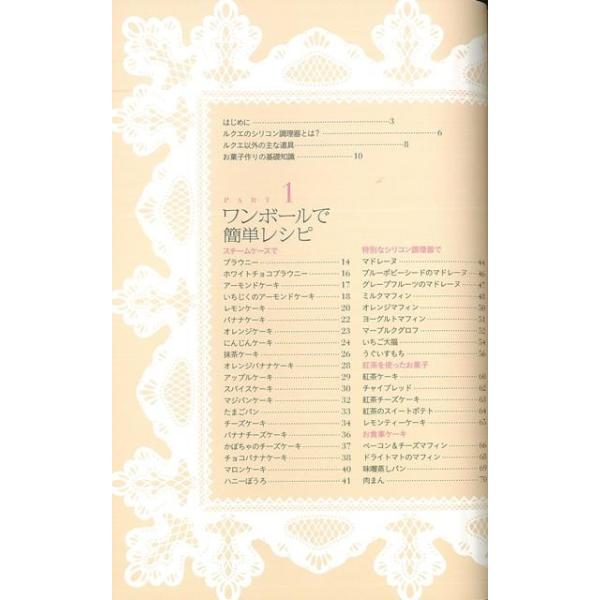 はじめに 3
ルクエのシリコン調理器とは? 6
ルクエ以外の主な道具 8
お菓子作りの基礎知識 10
PART 1
ワンボールで
簡単レシピ
スチームケースで
ブラウニー 14
ホワイトチョコブラウニー 16
アーモンドケーキ 17
いちじくのアーモンドケーキ 18
レモンケーキ 20
バナナケーキ 22
オレンジケーキ 23
にんじんケーキ 24
抹茶ケーキ 26
オレンジバナナケーキ 28
アップルケーキ 29
スパイスケーキ 30
マジパンケーキ 32
たまごパン 33
チーズケーキ 34
バナナチーズケーキ 36
かぼちゃのチーズケーキ 37
チョコバナナケーキ 38
マロンケーキ 40
ハニーぼうろ 41
特別なシリコン調理器で
マドレーヌ 44
ブルーポピーシードのマドレーヌ 46
グレープフルーツのマドレーヌ 47
ミルクマフィン 48
オレンジマフィン 50
ヨーグルトマフィン 51
マーブルクグロフ 52
いちご大福 54
うぐいすもち 56
紅茶を使ったお菓子
紅茶ケーキ 60
チャイブレッド 62
紅茶チーズケーキ 63
紅茶のスイートポテト 64
レモンティーケーキ 65
お食事ケーキ
ベーコン&チーズマフィン 66
ドライトマトのマフィン 68
味噌蒸しパン 69
肉まん 70